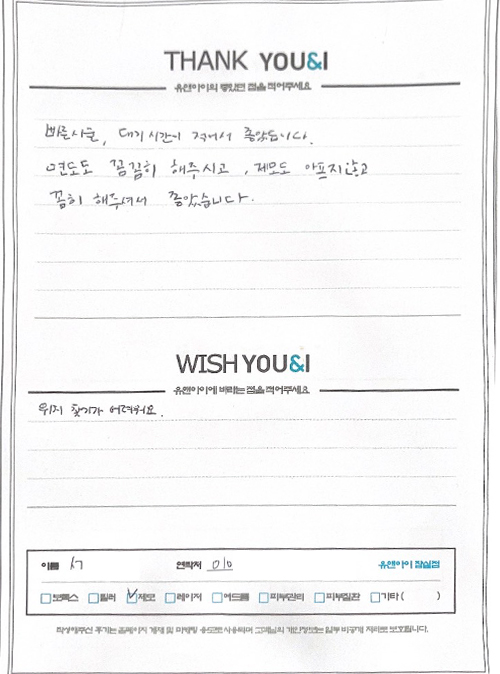 THANK YOU&I
유앤아이의 좋았던 점을 적어주세요
빠른시술, 대기시간이 적어서 좋았습니다.
면도도 꼼꼼히 해주시고, 제모도 아프지않고
꼼히 해주셔서 좋았습니다.
WISH YOU&I
유앤아이에 바라는 점을 적어주세요
위치 찾기가 어려워요.
이름 서 연락처 010 유앤아이 잠실점
보톡스 필러 제모 레이저 여드름 피부관리 피부질환 기타 ( )
작성해주신 후기는 홈페이지 게재 및 마케팅 용도로 사용되며 고객님의 개인정보는 일부 비공개 처리로 보호됩니다.